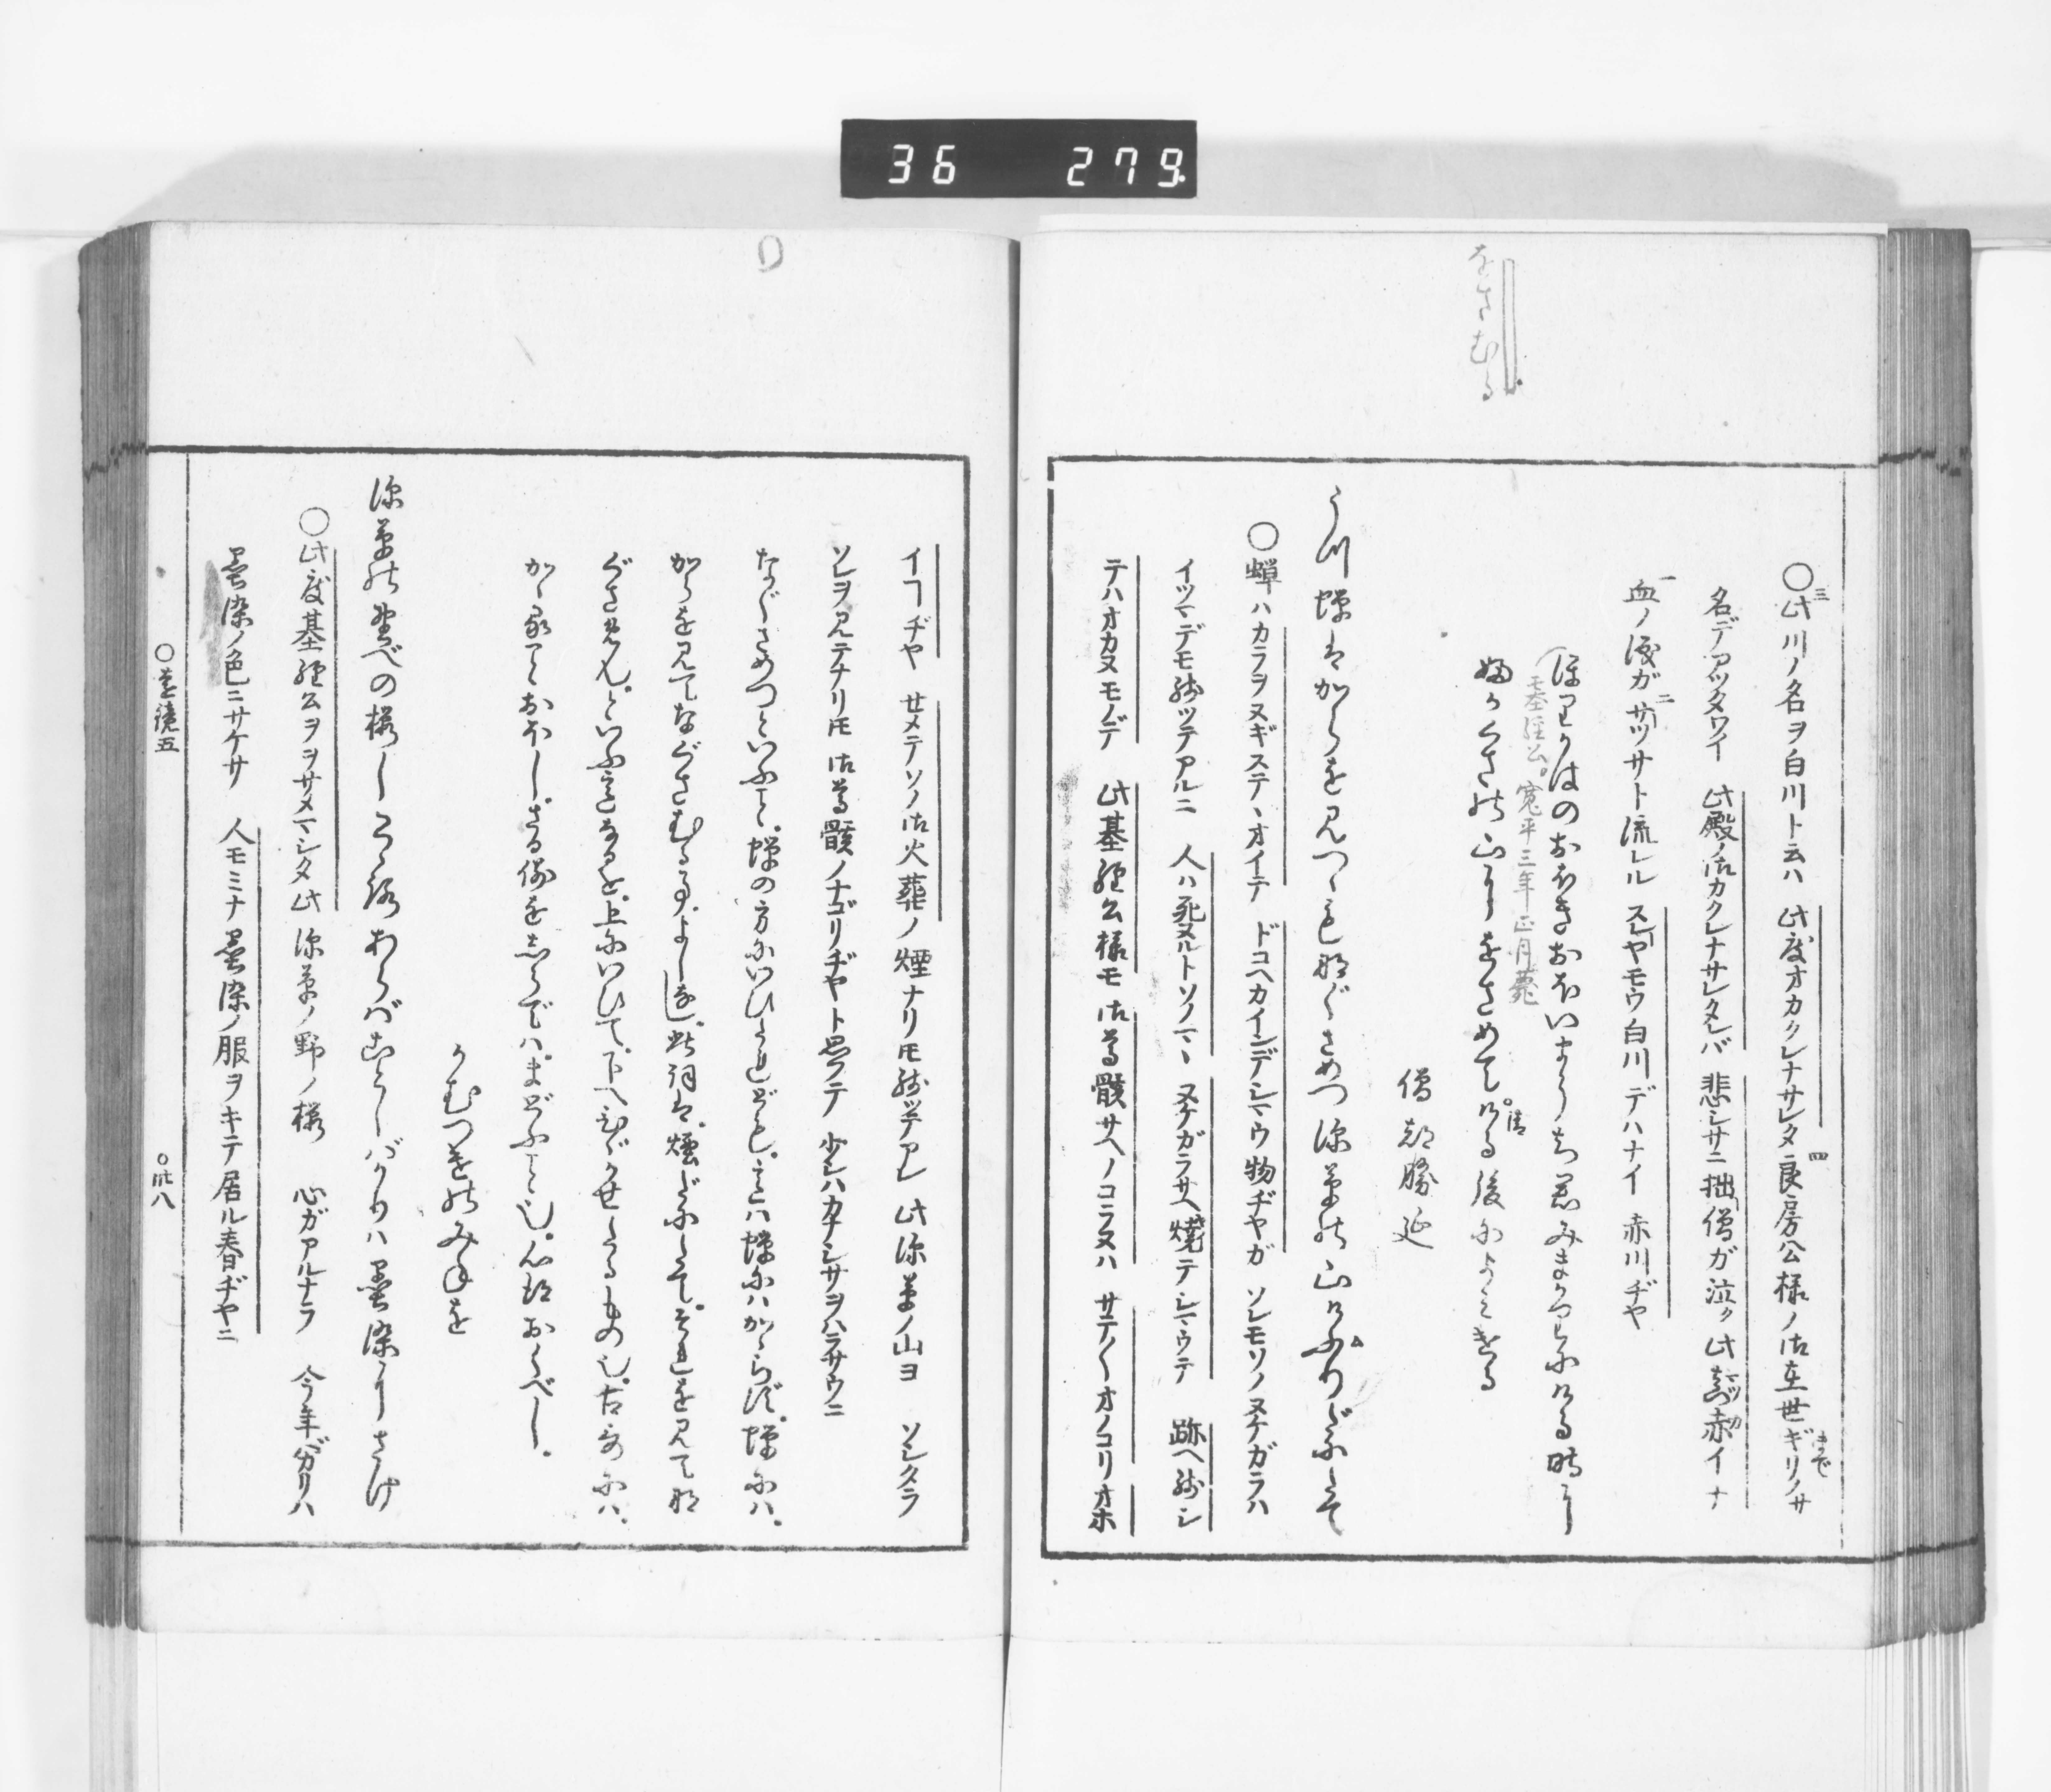 36 279
をさむる
○此川ノ名ヲ白川ト云ハ 此度オカクレナサレタ良房公様ノ御在世ギリノサ
まで
名デアツタワイ 此殿ノ御カクレナサレタレバ 悲シサニ拙僧ガ泣ク此真赤イナ
血ノ涙ガサツサト流レル スレヤモウ白川デハナイ 赤川ヂヤ
ほりかはのおほきおほいまうち君みまかりにける時に
基経公。寛平三年正月薨
ふかくさの山にをさめてける後によみける
僧都勝延
うつ蝉はからを見つゝもなぐさめつ深草の山けふりだにたて
○蝉ハカラヲヌギステヽオイテ ドコヘカインデシマウ物ヂヤガ ソレモソノヌケガラハ
イツマデモ残ツテアルニ 人ハ死ヌルトソノマヽ ヌケガラサヘ焼テシマウテ 跡ヘ残シ
テハオカヌモノデ 此基経公様モ 御尊骸サヘノコラヌハ サテ〳〵オノコリオホ
イコヂヤ セメテソノ御火葬ノ煙ナリモ残ツテアレ 此深草ノ山ヨ ソシタラ
ソレヲ見テナリモ 御尊骸ノナゴリヂヤト思フテ 少シハカナシサヲハラサウニ
なぐさめつといふこと。蝉の方にいひたれども。意ハ蝉にハかららず。蝉にハ。
からを見てなぐさむる事。よしを。此詞は。煙だにたて。それを見てな
ぐさめん。といふ意なるを。上にいひて。下へひゞかせたるもの也。古哥にハ。
かゝることおほし。さる例をしらでハ。まどふこと也。心得おくべし。
かむつけのみねを
深草の野べの桜し心あらばことしばかりハ墨染にさけ
○此度基経公ヲヲサメマシタ此 深草ノ野ノ桜 心ガアルナラ 今年バカリハ
墨染ノ色ニサケサ 人モミナ墨染ノ服ヲキテ居ル春ヂヤニ
○遠鏡五
○卅八